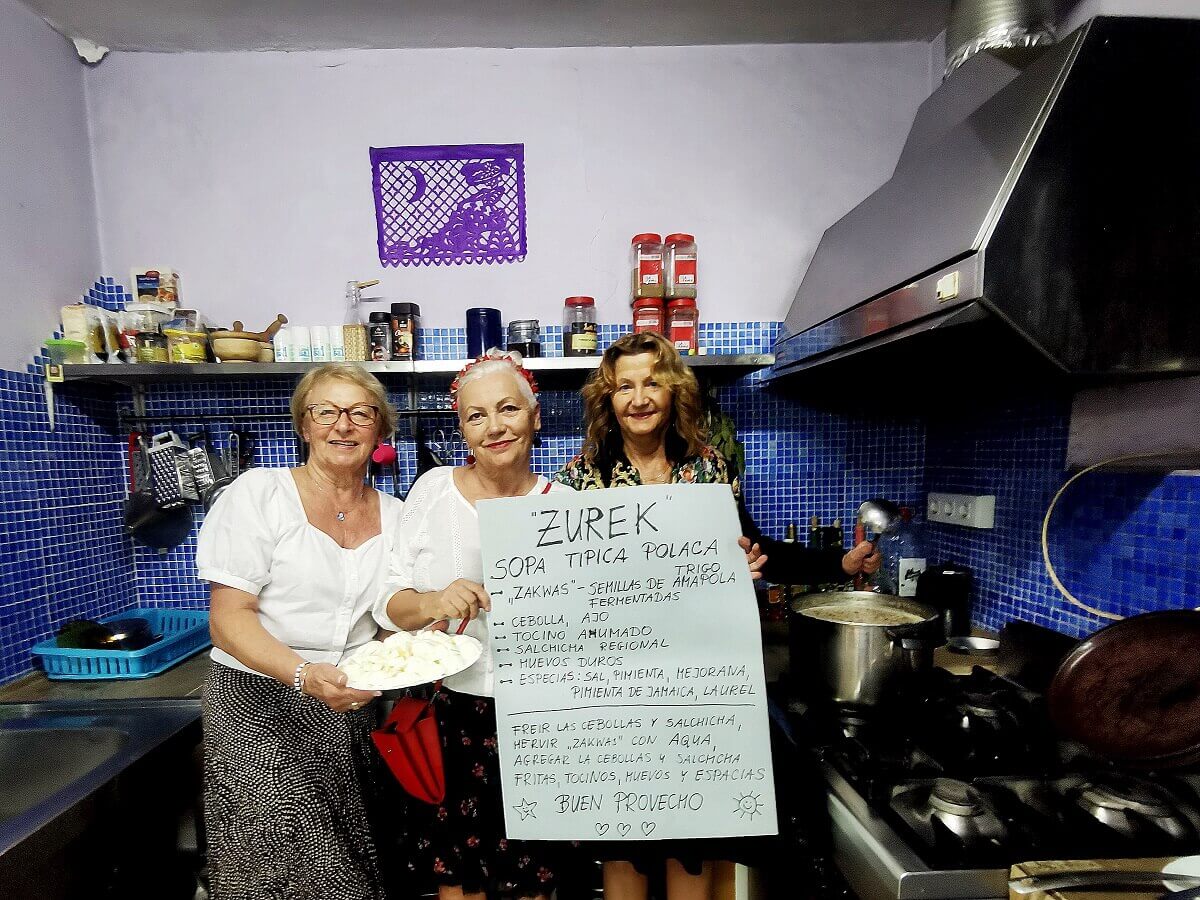 "ZUREK"
SOPA TIPICA POLACA
TRIGO
„ZAKWAS" - SEMILLAS DE AMAPOLA
FERMENTADAS
CEBOLLA, AJO
TOCINO AHUMADO
SALCHICHA REGIONAL
HUEVOS DUROS
ESPECIAS: SAL, PIMIENTA, MEJORANA,
PIMIENTA DE JAMAICA, LAUREL
FREIR LAS CEBOLLAS Y SALCHICHA,
HERVIR „ZAKWAS" CON AQUA,
AGREGAR LA CEBOLLAS Y SALCHICHA
FRITAS, TOCINOS, HUEVOS Y ESPACIAS
BUEN PROVECHO